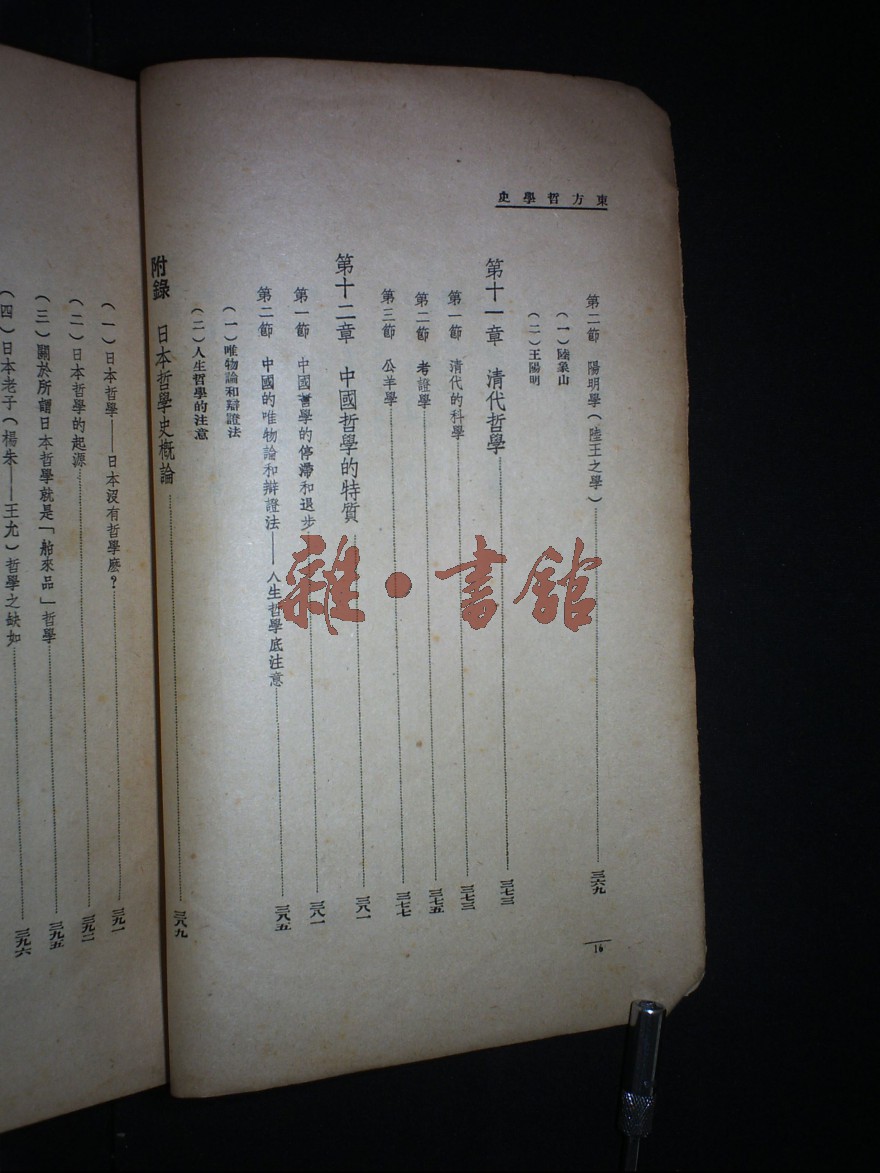 東方哲學史
第二節　陽明學(陸王之學)……三六九
(一)陸象山
(二)王陽明
第十一章　清代哲學……三七三
第一節　清代的科學……三七三
第二節　考證學……三七五
第三節　公羊學……三七七
第十二章　中國哲學的特質……三八一
第一節　中國哲學的停滯和退步……三八一
第二節　中國的唯物論和辯證法——人生哲學底注意……三八五
(一)唯物論和辯證法
(二)人生哲學的注意
附錄　日本哲學史概論……三八九
16
(一)日本哲學——日本沒有哲學麽?……三九一
(二)日本哲學的起源……三九二
(三)關於所謂日本哲學就是「舶來品」哲學……三九五
(四)日本老子(楊朱——王充)哲學之缺如……三九六
雜·書館